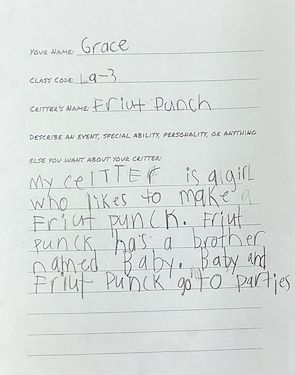 YOUR NAME: Grace
CLASS CODE: La-3
CRITTER'S NAME: Friut Punch
DESCRIBE AN EVENT, SPECIAL ABILITY, PERSONALITY, OR ANYTHING
ELSE YOU WANT ABOUT YOUR CRITTER:
My ceITTEr is a girl
who likes to make a
Friut punch. Friut
punch has a brother
named Baby. Baby and
Friut Punch go to parties